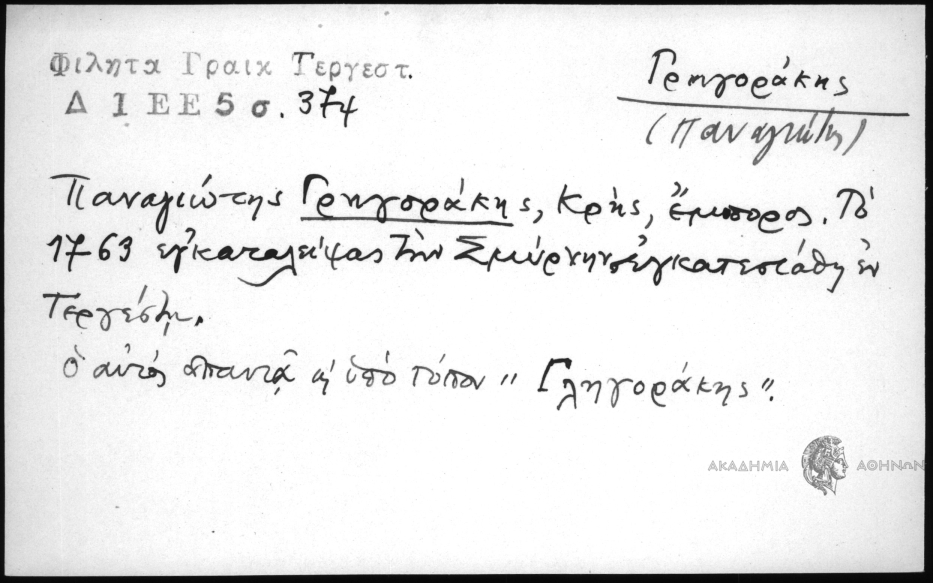 Φιλητα Γραικ Τεργεστ.
Δ Ι Ε Ε 5 σ. 374
Γρηγοράκης
(Παναγιώτης)
Παναγιώτης Γρηγοράκης, Κρής, ἔμπορος. Τό
1763 ἐγκαταλείψας τὴν Σμύρνην ἐγκατεστάθη ἐν
Τεργέστῃ.
ὁ αὐτός ἀπαντᾷ κ' ὑπό τύπον "Γληγοράκης".
ΑΚΑΔΗΜΙΑ ΑΘΗΝΩΝ